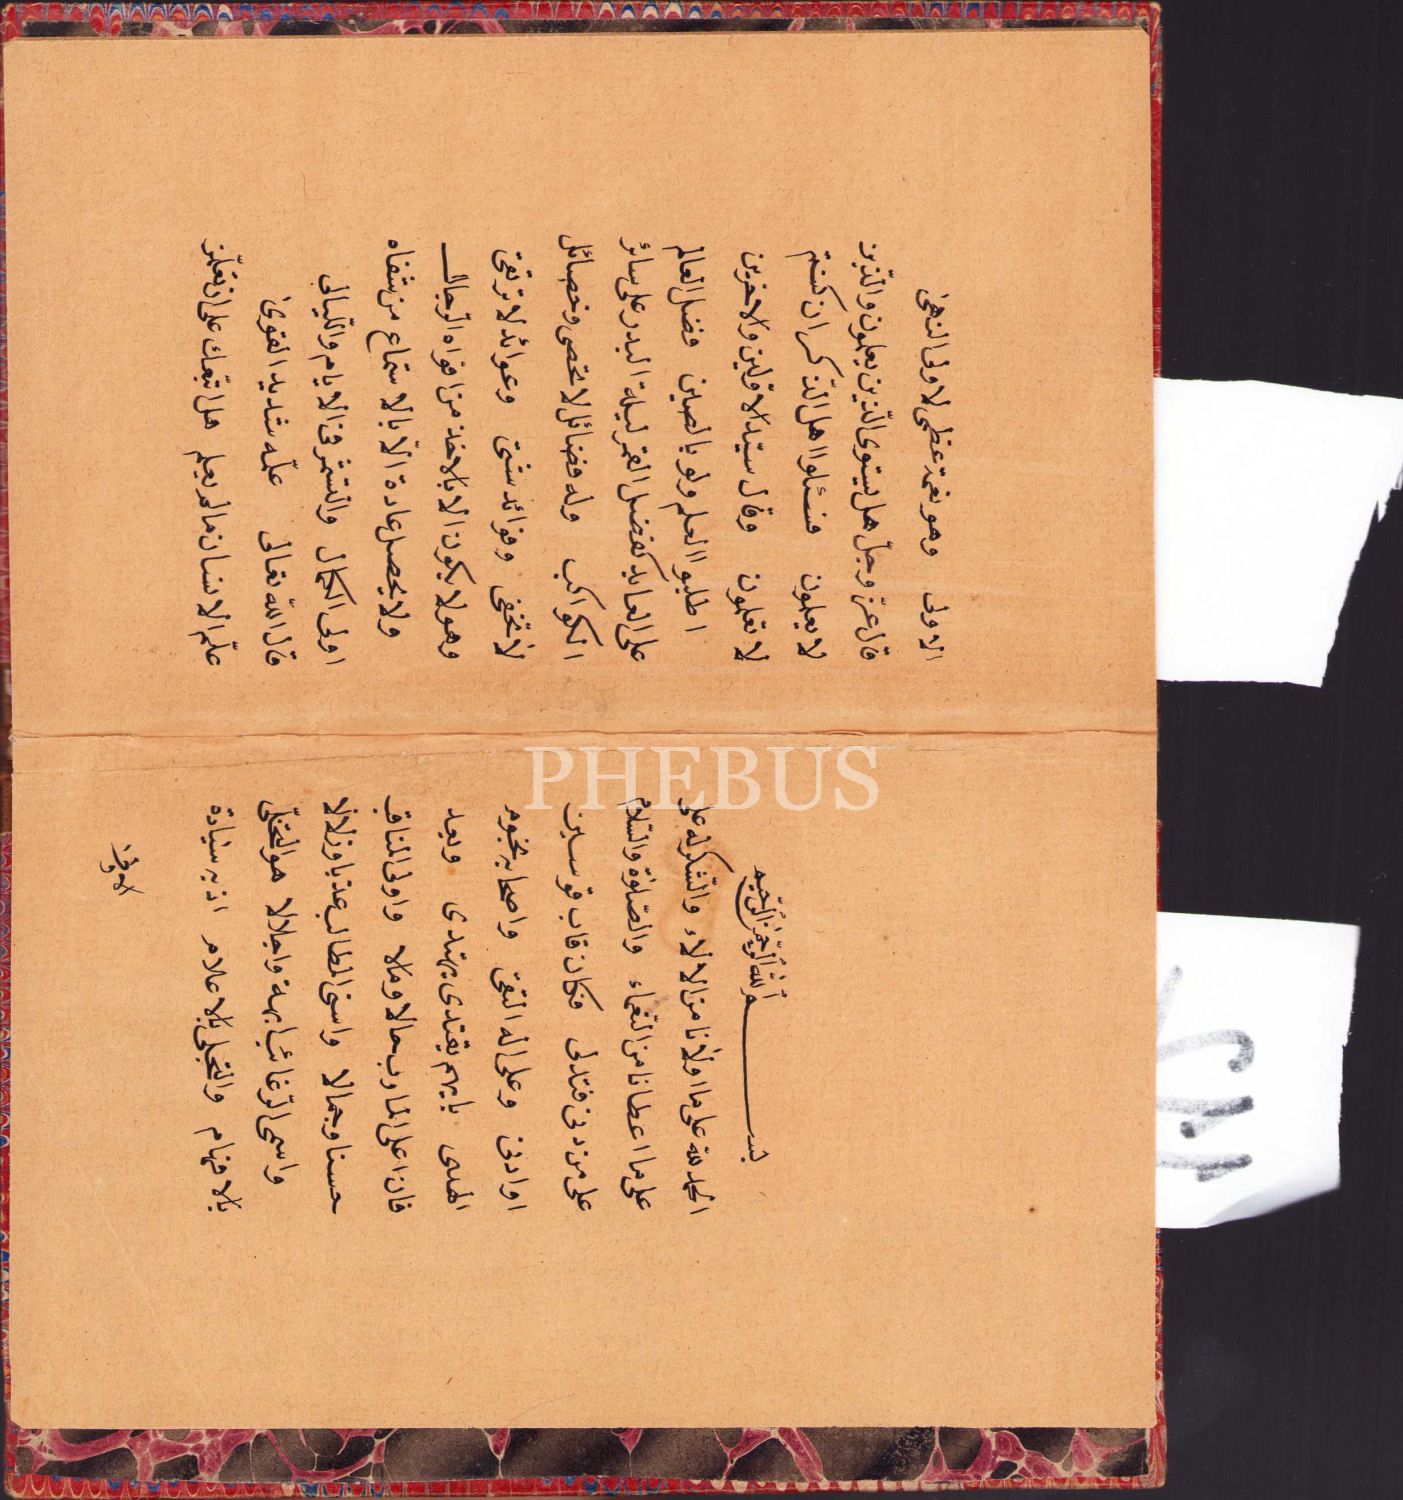 بسم الله الرحمن الرحيم
الحمد لله على ما اولانا من الالاء والشكر له على
على ما اعطانا من النعماء والصلوة والسلام
على من دنى فتدلى فكان قاب قوسين
او ادنى وعلى اله التقى واصحابه نجوم
الهدى بايهم يقتدى يهتدى وبعد
فان اعلى المارب حالا ومالا واولى المناقب
حسنا وجمالا واسنى المطالب عذبا وزلالا
واسمى الرغائب ابهة واجلالا هو التخلى
بالافهام والتجلى بالاعلام اذ به سيادة
الاولى
الاولى وهو نعمة عظمى لاولى النهى
قال عز وجل هل يستوى الذين يعلمون والذين
لا يعلمون فسئلوا اهل الذكر ان كنتم
لا تعلمون وقال سيد الاولين والاخرين
اطلبوا العلم ولو بالصين فضل العالم
على العابد كفضل القمر ليلة البدر على سائر
الكواكب وله فضائل لا تحصى وخصائل
لا تخفى وفوائد شتى وعوائد لا ترتقى
وهو لا يكون الا بالاخذ من افواه الرجال
ولا يحصل عادة الا بالاستماع من شفاه
اولى الكمال والتشمر فى الايام والليالى
قال الله تعالى علمه شديد القوى
علم الانسان مالم يعلم هل اتبعك على ان تعلمن
PHEBUS